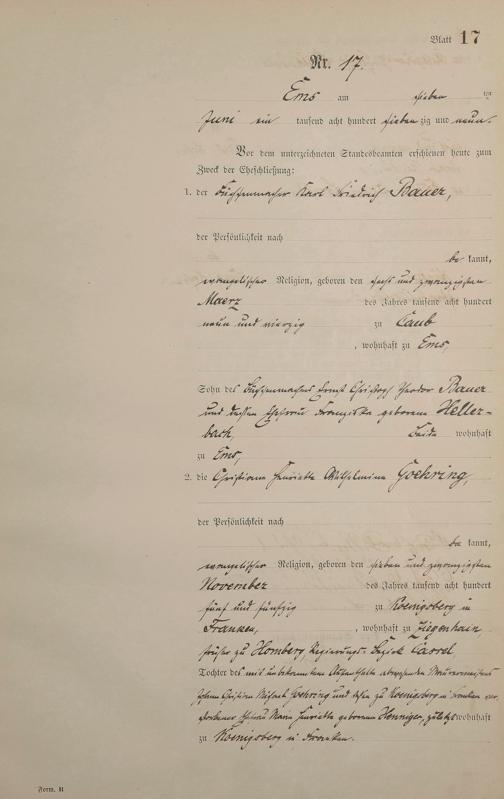 Blatt 17
Nr. 17.
Ems am sieben ten
Juni ein tausend acht hundert sieben zig und neun.
Vor dem unterzeichneten Standesbeamten erschienen heute zum
Zweck der Eheschließung:
1. der Büchsenmacher Karl Friedrich Bauer,
der Persönlichkeit nach
be kannt,
evangelischer Religion, geboren den sechs und zwanzigsten
Maerz des Jahres tausend acht hundert
neun und vierzig zu Caub
, wohnhaft zu Ems,
Sohn des Büchsenmachers Ernst Christoph Theodor Bauer
und dessen Ehefrau Franziska geborene Heller-
bach, beide wohnhaft
zu Ems,
2. die Christiane Henriette Wilhelmine Goehring,
der Persönlichkeit nach
be kannt,
evangelischer Religion, geboren den sieben und zwanzigsten
November des Jahres tausend acht hundert
fünf und fünfzig zu Koenigsberg in
Franken, , wohnhaft zu Ziegenhain,
früher zu Homberg, Regierungs-Bezirk Cassel
Tochter des mit unbekanntem Aufenthalte abwesenden Maurermeisters
Johann Christian Goehring und dessen zu Koenigsberg in Franken ver-
storbener Ehefrau Maria Henriette geborenen Henniger, zuletzt wohnhaft
zu Koenigsberg in Franken.
Form. B